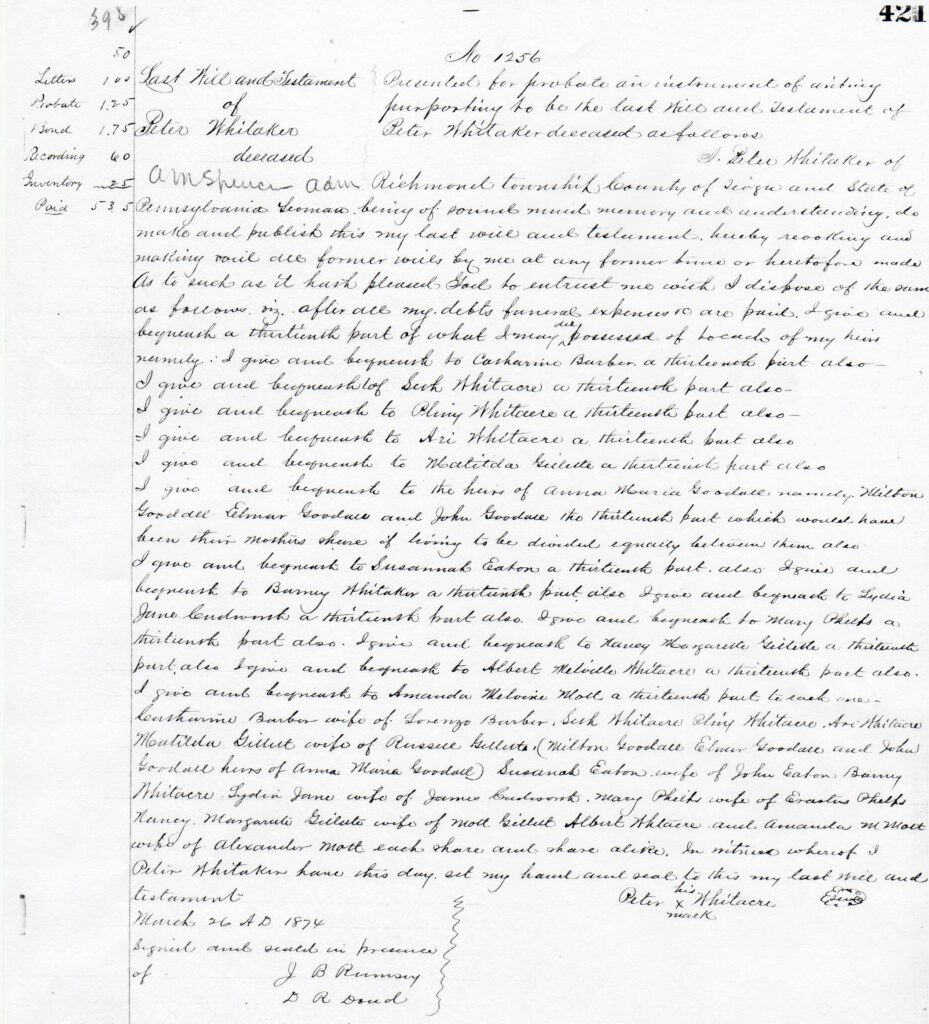 398 ✓
421
50
No 1256
Letters 1 00
Probate 1.25
Bond 1.75
Recording 60
Inventory 25
Paid 5 35
Last Will and Testament
of
Peter Whitaker
deceased
A M Spencer adm
Presented for probate an instrument of writing
purporting to be the last Will and Testament of
Peter Whitaker deceased as follows
I. Peter Whitaker of
Richmond township County of Tioga and State of
Pennsylvania Yeoman. being of sound mind memory and understanding, do
make and publish this my last will and testament. hereby revoking and
making void all former wills by me at any former time or heretofore made
As to such as it hath pleased God to entrust me with I dispose of the same
as follows. viz. after all my debts funeral expenses &c are paid. I give and
bequeath a thirteenth part of what I may die possessed of to each of my heirs
namely: I give and bequeath to Catharine Barber. a thirteenth part also—
I give and bequeath to Seth Whitacre a thirteenth part also—
I give and bequeath to Pliny Whitacre a thirteenth part also—
I give and bequeath to Ari Whitacre a thirteenth part also
I give and bequeath to Matilda Gillette a thirteenth part also
I give and bequeath to the heirs of Anna Maria Goodall namely. Milton
Goodall Elmar Goodall and John Goodall the thirteenth part which would have
been their mothers share if living to be divided equally between them also
I give and bequeath to Susannah Eaton a thirteenth part. also I give and
bequeath to Barney Whitaker a thirteenth part also I give and bequeath to Lydia
Jane Cudworth a thirteenth part also. I give and bequeath to Mary Phelps a
thirteenth part also. I give and bequeath to Nancy Margarette Gillette a thirteenth
part also I give and bequeath to Albert Melville Whitacre a thirteenth part also.
I give and bequeath to Amanda Melvine Mott a thirteenth part to each one—
Catharine Barber wife of Lorenzo Barber, Seth Whitacre Pliny Whitacre. Ari Whitacre
Matilda Gillett wife of Russell Gillette. (Milton Goodall Elmar Goodall and John
Goodall heirs of Anna Maria Goodall) Susanah Eaton wife of John Eaton Barney
Whitacre Lydia Jane wife of James Cudworth. Mary Phelps wife of Erastus Phelps
Nancy. Margarete Gillette wife of Mott Gillett Albert Whitacre and Amanda M Mott
wife of Alexander Mott each share and share alike. In witness whereof I
Peter Whitaker have this day. set my hand and seal to this my last will and
testament
Peter his x mark Whitacre Seal
March 26 AD 1874
Signed and sealed in presence
of J B Rumsey
D R Doud